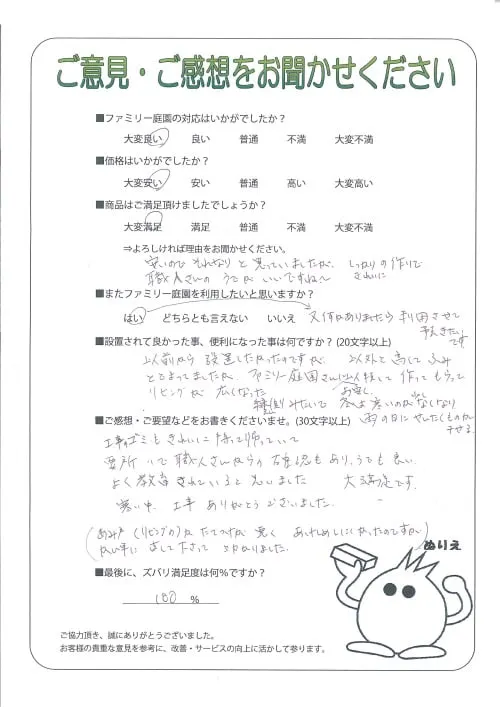 ご意見・ご感想をお聞かせください
■ファミリー庭園の対応はいかがでしたか？
大変良い 良い 普通 不満 大変不満
■価格はいかがでしたか？
大変安い 安い 普通 高い 大変高い
■商品はご満足頂けましたでしょうか？
大変満足 満足 普通 不満 大変不満
⇒よろしければ理由をお聞かせください。
安いので それなりと思っていましたが、 しっかりの作りで
職人さんの うでが いいですね〜 きれいに
■またファミリー庭園を利用したいと思いますか？
はい どちらとも言えない いいえ 又何かありましたら 利用させて
です
■設置されて良かった事、便利になった事は何ですか？(20文字以上)
以前から 設置したかったのですが
ファミリー庭園さんに 作ってもらって
リビングが 広くなった
雨の日に せんたくものが
■ご感想・ご要望などをお書きくださいませ。(30文字以上)
工事のゴミも きれいに 持って帰っていて
要所々で 職人さんからの 確認も あり、とても良い
よく教育されていると思いました 大満足です。
寒い中 工事 ありがとうございました。
(あみ戸 (リビングの)が たてつけが 悪く あけしめしにくかったのですが
なおして下さって 助かりました。)
ぬりえ
■最後に、ズバリ満足度は何％ですか？
100 %
ご協力頂き、誠にありがとうございました。
お客様の貴重な意見を参考に、改善・サービスの向上に活かして参ります。